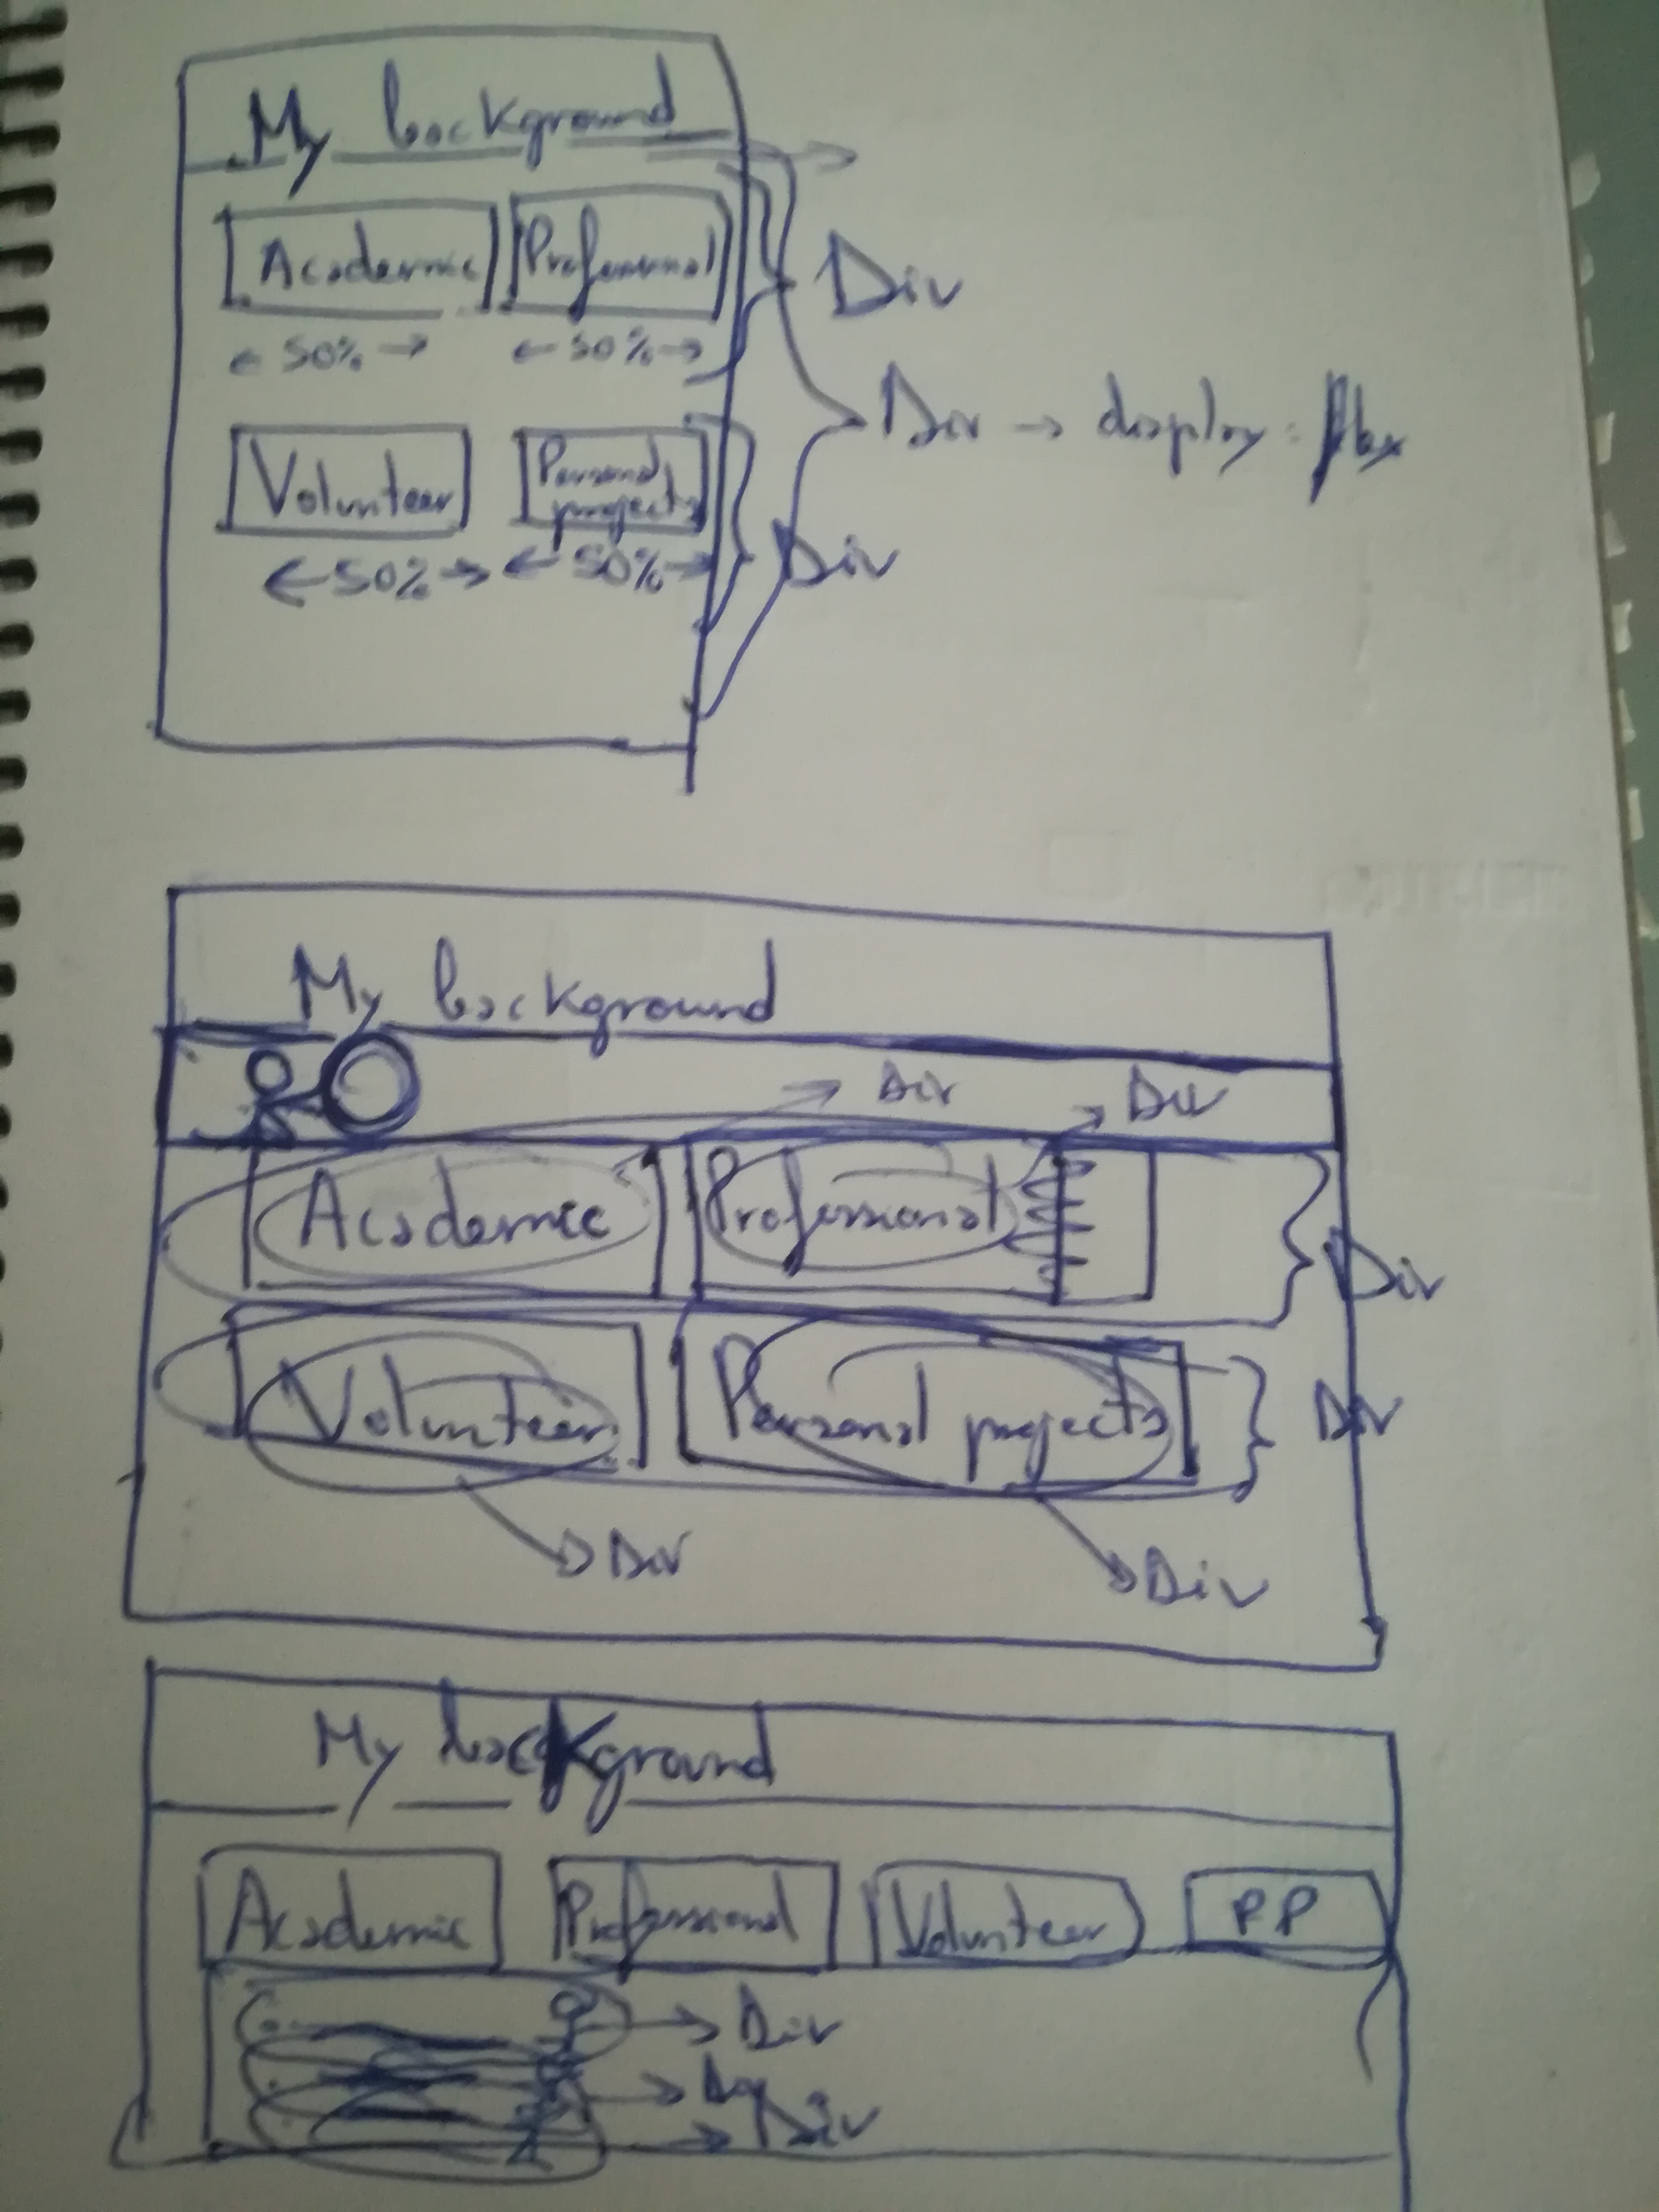 My background
Academic Professional
Div
← 50% → ← 50% →
Div → display: flex
Volunteer Personal projects
← 50% → ← 50% →
Div
My background
Div Div
Academic Professional
Div
Volunteer Personal projects
Div
Div Div
My background
Academic Professional Volunteer PP
Div
Div